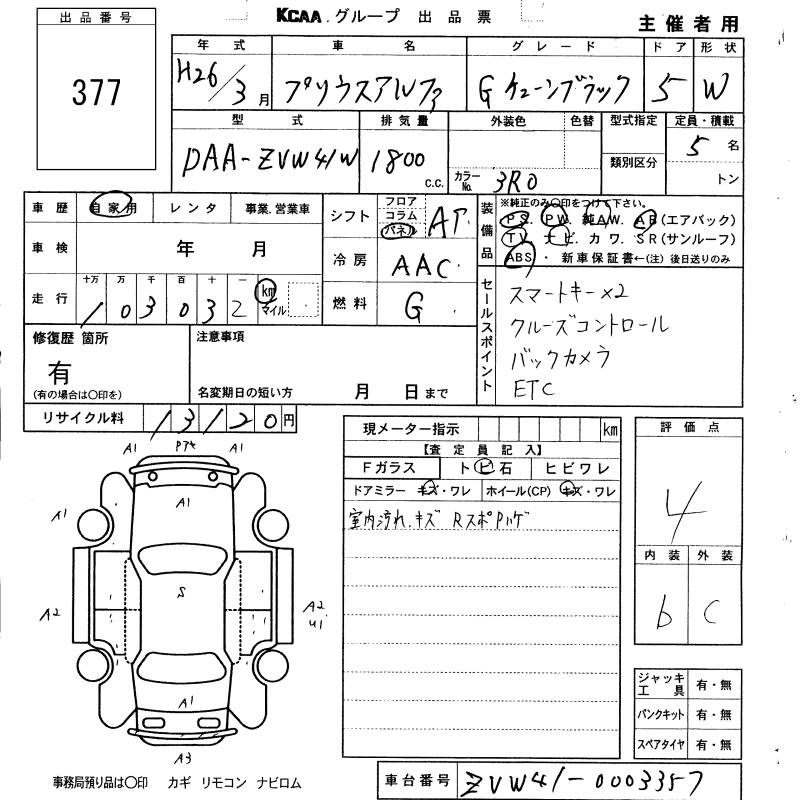 KCAA.グループ 出品票
主催者用
出品番号
377
年式 車名 グレード ドア 形状
H26/3月 プリウスアルファ G チューンブラック 5 W
型式 排気量 外装色 色替 型式指定 定員・積載
類別区分
DAA-ZVW41W 1800 c.c. カラーNo. 3R0 5名
トン
車歴 自家用 レンタ 事業.営業車
シフト フロア コラム パネル AT
装備品 ※純正のみ〇印をつけて下さい。
PS. PW. 純AW. AB(エアバック)
TV. ナビ. カワ. SR(サンルーフ)
ABS ・ 新車保証書←(注)後日送りのみ
車検 年 月
冷房 AAC
走行 十万 万 千 百 十 一
103032 km マイル
燃料 G
セールスポイント
スマートキー×2
クルーズコントロール
バックカメラ
ETC
修復歴 箇所
有
(有の場合は〇印を)
注意事項
名変期日の短い方 月 日まで
リサイクル料 13120円
現メーター指示 km
【査定員記入】
Fガラス トビ石 ヒビワレ
ドアミラー キズ・ワレ ホイール(CP) キズ・ワレ
室内汚れ.キズ RスポPハゲ
評価点
4
内装 外装
b C
A1 Pアキ A1
A1
A1 A1
S
A2 A2
U1
A1
A3
ジャッキ工具 有・無
パンクキット 有・無
スペアタイヤ 有・無
事務局預り品は〇印 カギ リモコン ナビロム
車台番号 ZVW41-0003357